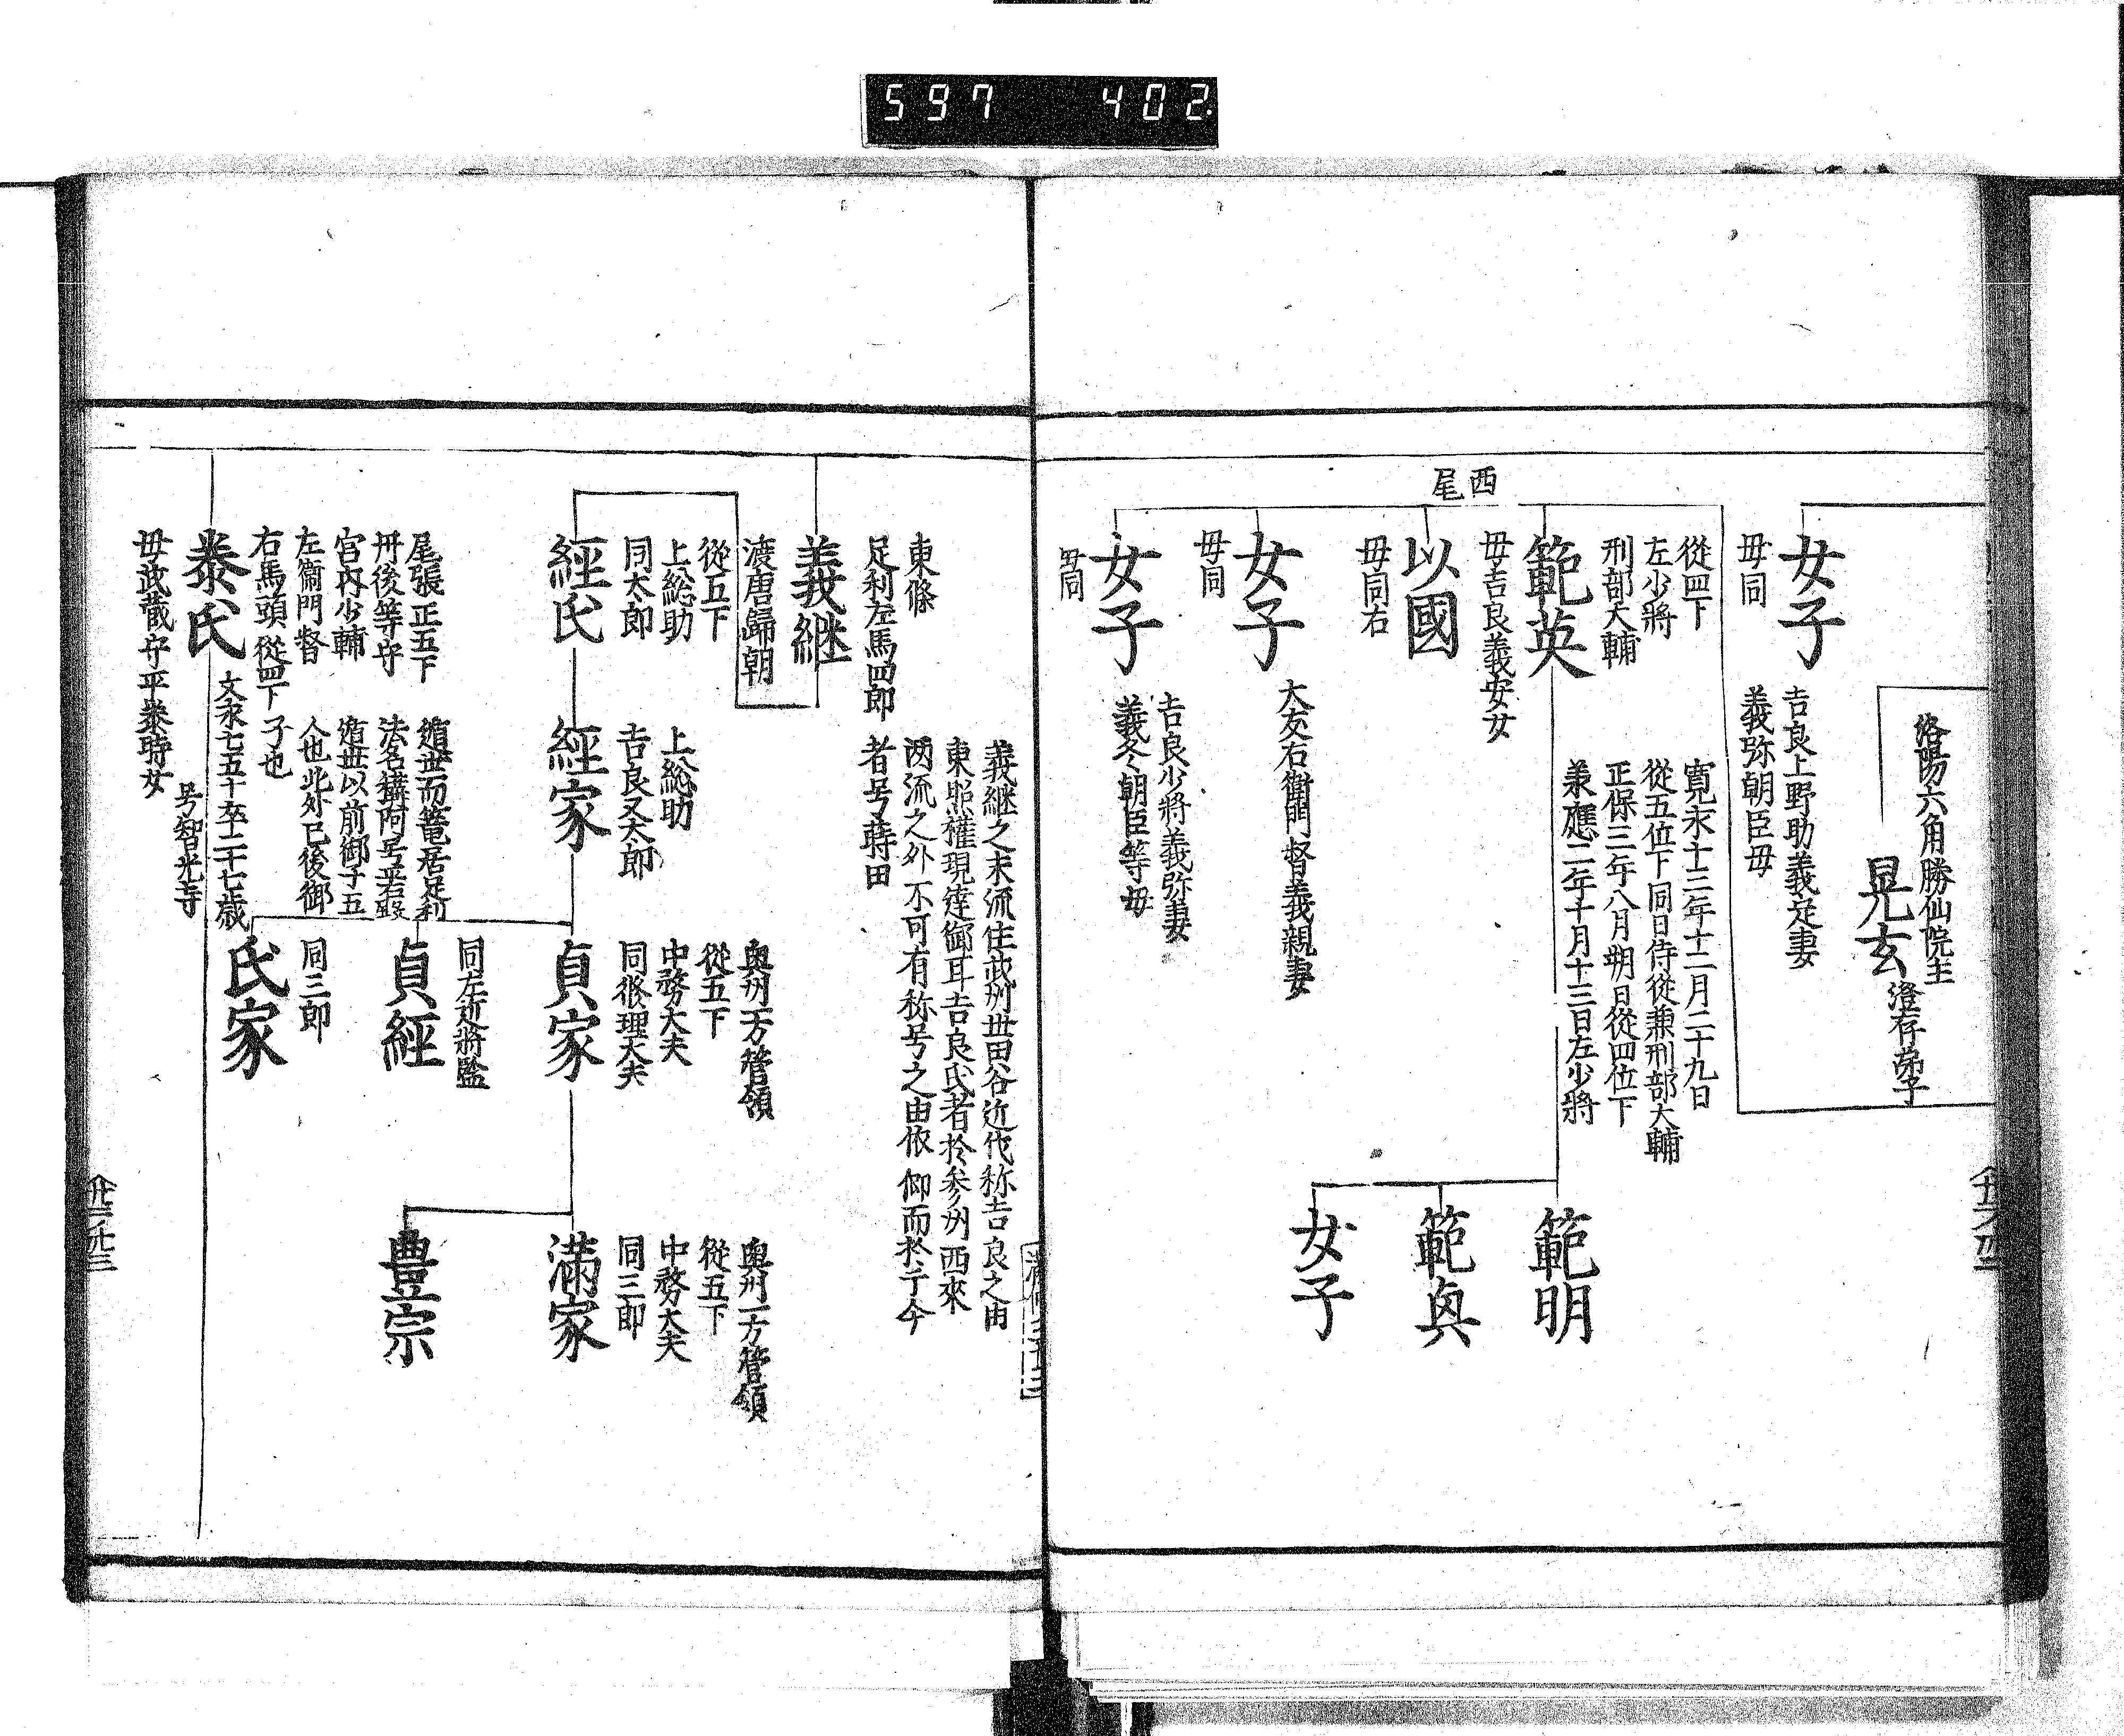 597 402
女子
母同
吉良上野助義定妻
義弥朝臣母
洛陽六角勝仙院主
晃玄
澄存弟子
西尾
從四下
左少將
刑部大輔
範英
母吉良義安女
寛永十三年十二月二十九日
從五位下同日侍從兼刑部大輔
正保三年八月朔日從四位下
承應二年十月十三日左少將
範明
範奥
女子
以國
母同右
女子
母同
大友右衛門督義親妻
女子
母同
吉良少將義弥妻
義冬朝臣等母
東條
足利左馬四郎
義継
義継之末流住武州世田谷近代称吉良之由
東照權現達御耳吉良氏者於参州西來
两流之外不可有称号之由依仰而於于今
者号蒔田
渡唐歸朝
從五下
上総助
同太郎
經氏
上総助
吉良又太郎
經家
奥州一方管領
從五下
中務大夫
同修理大夫
貞家
奥州一方管領
從五下
中務大夫
同三郎
滿家
豊宗
同左近將監
貞經
同三郎
氏家
尾張正五下
丹後等守
宮内少輔
左衛門督
右馬頭從四下
泰氏
母武藏守平泰時女
遁世而篭居足利
遁世以前御子五
人也此外已後御
子也
文永七五十卒二十七歳
号智光寺